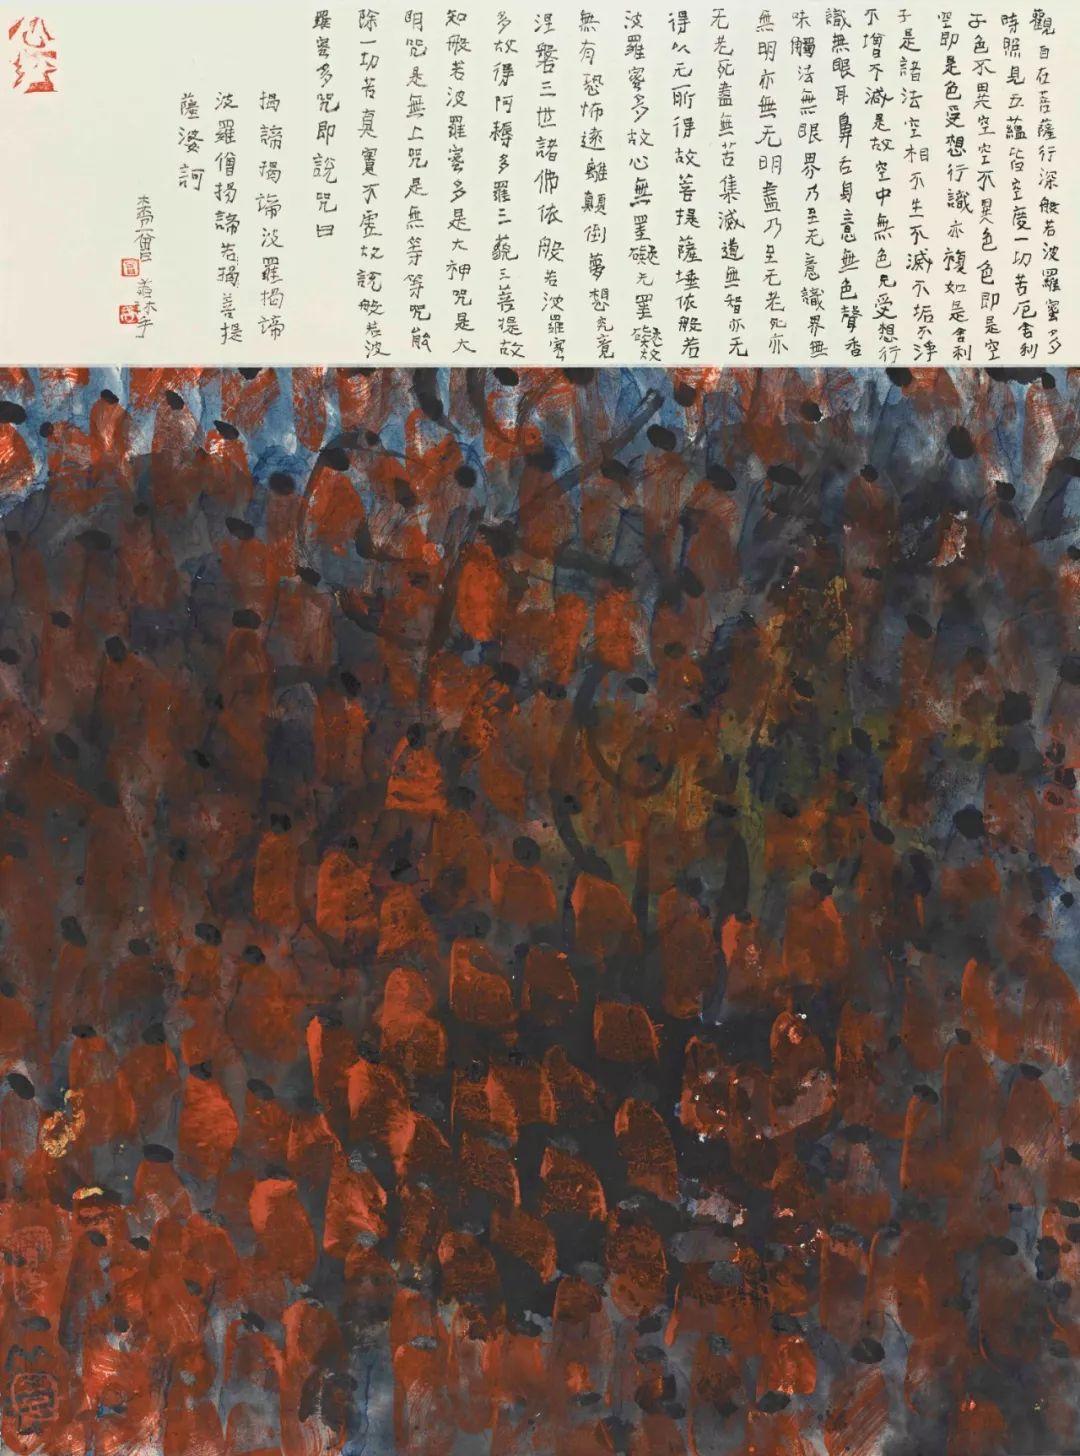 觀自在菩薩行深般若波羅蜜多
時照見五蘊皆空度一切苦厄舍利
子色不異空空不異色色即是空
空即是色受想行識亦複如是舍利
子是諸法空相不生不滅不垢不淨
不增不減是故空中無色无受想行
識無眼耳鼻舌身意無色聲香
味觸法無眼界乃至无意識界無
無明亦無无明盡乃至无老死亦
无老死盡無苦集滅道無智亦无
得以无所得故菩提薩埵依般若
波羅蜜多故心無罣礙无罣礙故
無有恐怖遠離顛倒夢想究竟
涅槃三世諸佛依般若波羅蜜
多故得阿耨多羅三藐三菩提故
知般若波羅蜜多是大神咒是大
明咒是無上咒是無等等咒能
除一切苦真實不虛故說般若波
羅蜜多咒即說咒曰
揭諦揭諦波羅揭諦
波羅僧揭諦若揭菩提
薩婆訶
心经